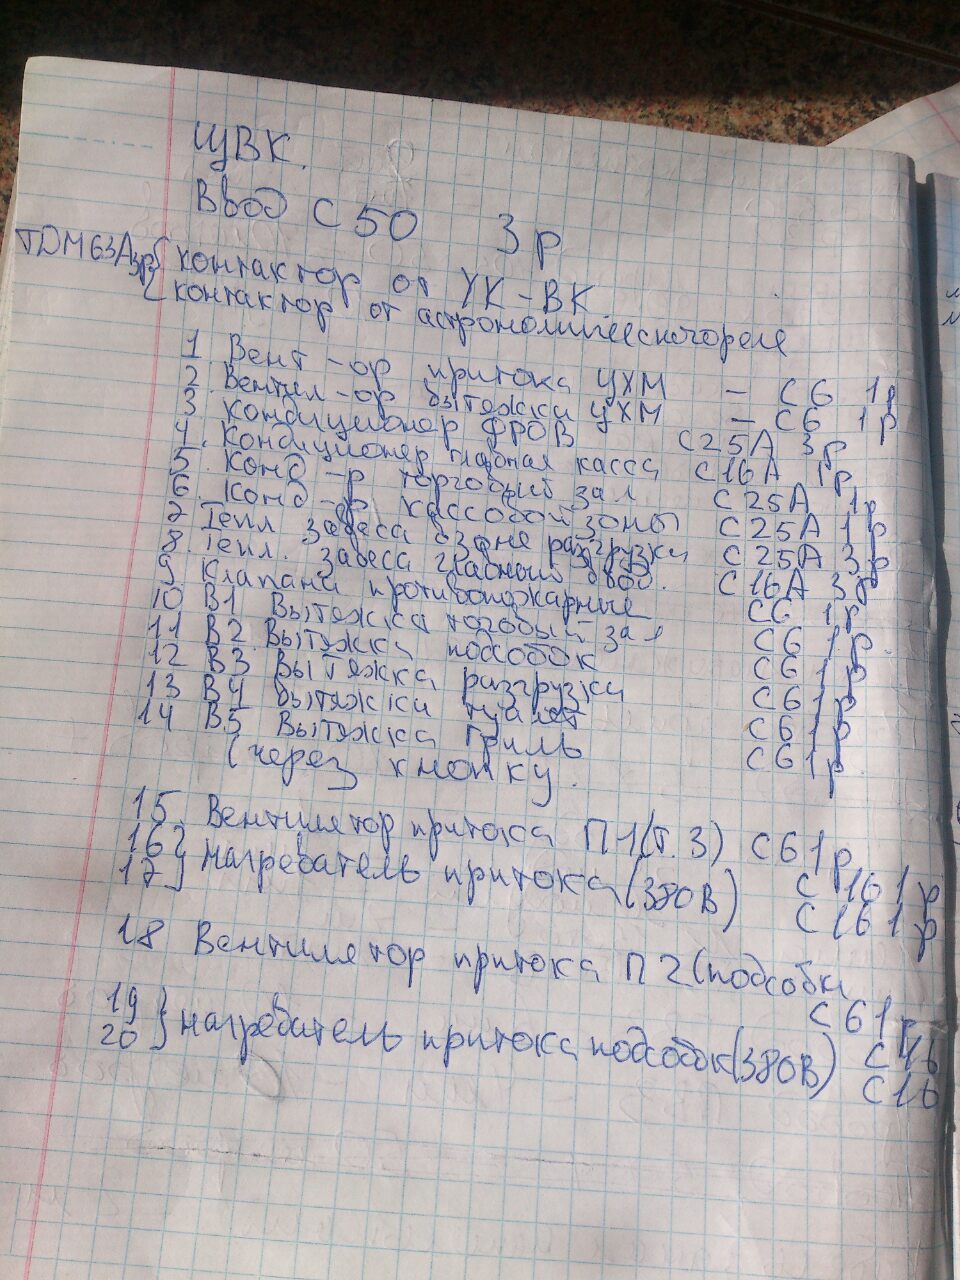 ЩВК.
Ввод С 50 3 р
TDM 63A 3р { контактор от УК-ВК
контактор от астрономического реле
1 Вент-ор притока ЦХМ - С6 1р
2. Вентил-ор вытяжки ЦХМ - С6 1р
3 кондиционер ФРОВ С25А 3р
4. Кондиционер главная касса С16А 1р
5. Конд-р торговый зал С25А 1р
6. Конд-р кассовой зоны С25А 1р
7 Тепл завеса в зоне разгрузки С25А 3р
8. Тепл. завеса главный ввод. С16А 3р
9 Клапана противопожарные С6 1р
10 В1 Вытяжка тогобый зал С6 1р.
11 В2. Вытяжка подсобок С6 1р
12 В3 Вытяжка разгрузка С6 1р
13 В4 вытяжки туалет С6 1р
14 В5 Вытяжка Гриль С6 1р
(через кнопку.
15. Вентилятор притока П1(т.З) С6 1р
16 } нагреватель притока (380В) С16 1р
17 С16 1р
18 Вентилятор притока П2(подсобки
С6 1р
19 } нагреватель притока подсобок(380В) С16
20 С16